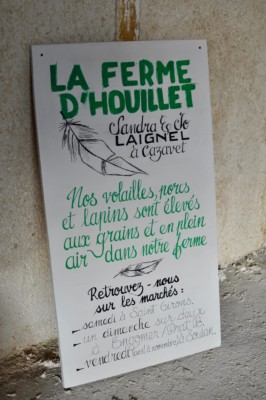 LA FERME
D'HOUILLET
Sandra & Jo
LAIGNEL
à Cazavet
Nos volailles, porcs
et lapins sont élevés
aux grains et en plein
air dans notre ferme
Retrouvez-nous
sur les marchés :
samedi à Saint Girons.
un dimanche sur deux
à Engomer / Prat
vendredi à Soulan.